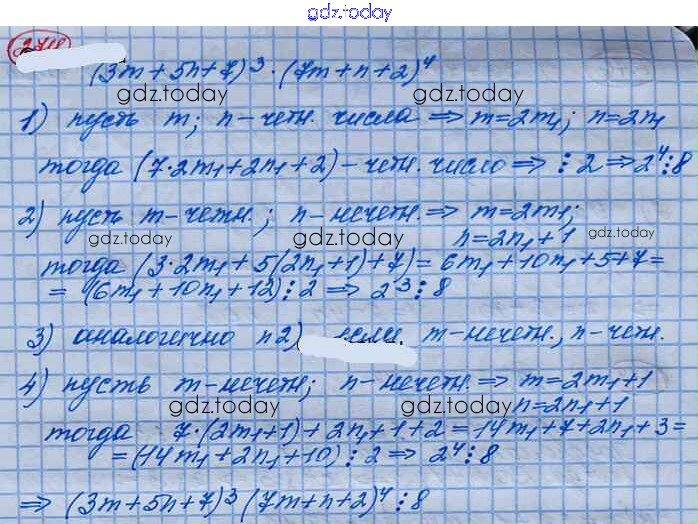 gdz.today
(3m+5n+7)³·(7m+n+2)⁴
gdz.today gdz.today
1) пусть m; n-четн. числа ⇒ m=2m₁; n=2n₁
тогда (7·2m₁+2n₁+2)-четн. число ⇒ ⋮2 ⇒ 2⁴⋮8
2) пусть m-четн.; n-нечетн. ⇒ m=2m₁;
n=2n₁+1
gdz.today gdz.today gdz.today
тогда (3·2m₁+5(2n₁+1)+7)=6m₁+10n₁+5+7=
=(6m₁+10n₁+12)⋮2 ⇒ 2³⋮8
3) аналогично п2) m-нечетн., n-четн.
4) пусть m-нечетн; n-нечетн. ⇒ m=2m₁+1
n=2n₁+1
gdz.today gdz.today
тогда 7·(2m₁+1)+2n₁+1+2=14m₁+7+2n₁+3=
=(14m₁+2n₁+10)⋮2 ⇒ 2⁴⋮8
⇒ (3m+5n+7)³(7m+n+2)⁴⋮8
gdz.today gdz.today